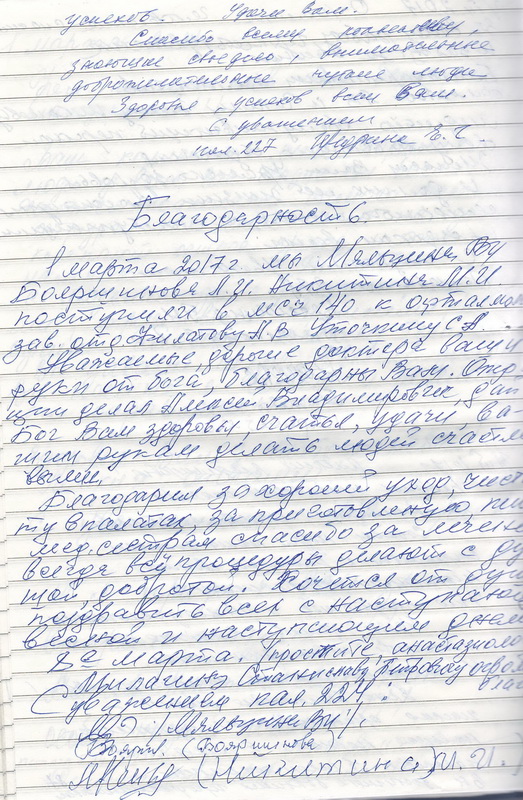 успехов. Удачи Вам.
Спасибо всему коллективу,
знающие своё дело, внимательные
доброжелательные чуткие люди
Здоровья, успехов всем Вам.
С уважением
пал. 227 Е.
Благодарность.
1 марта 2017 г. мы
Бояршинова Л.И. Никитина М.И.
поступили в МСЧ 140 к офтальмол
зав. отд Филатову А.В Уточкину С.А.
Уважаемые дорогие доктора ваши
руки от Бога, благодарны Вам. Опер
ции делал Алексей Владимирович, дай
Бог Вам здоровья, счастья, удачи, ва
шим рукам делать людей счастли
выми.
Благодарим за хороший уход, чисто
ту в палатах, за приготовленную пи
мед. сестрам спасибо за лечение
всегда все процедуры делают с ду
шой, добротой. Хочется от души
поздравить всех с наступающ
весной и наступающим днём
8е марта. простите, анастазиоло
Станиславу
С уважением пал. 224.
(Бояршинова)
(Никитина) М.И.